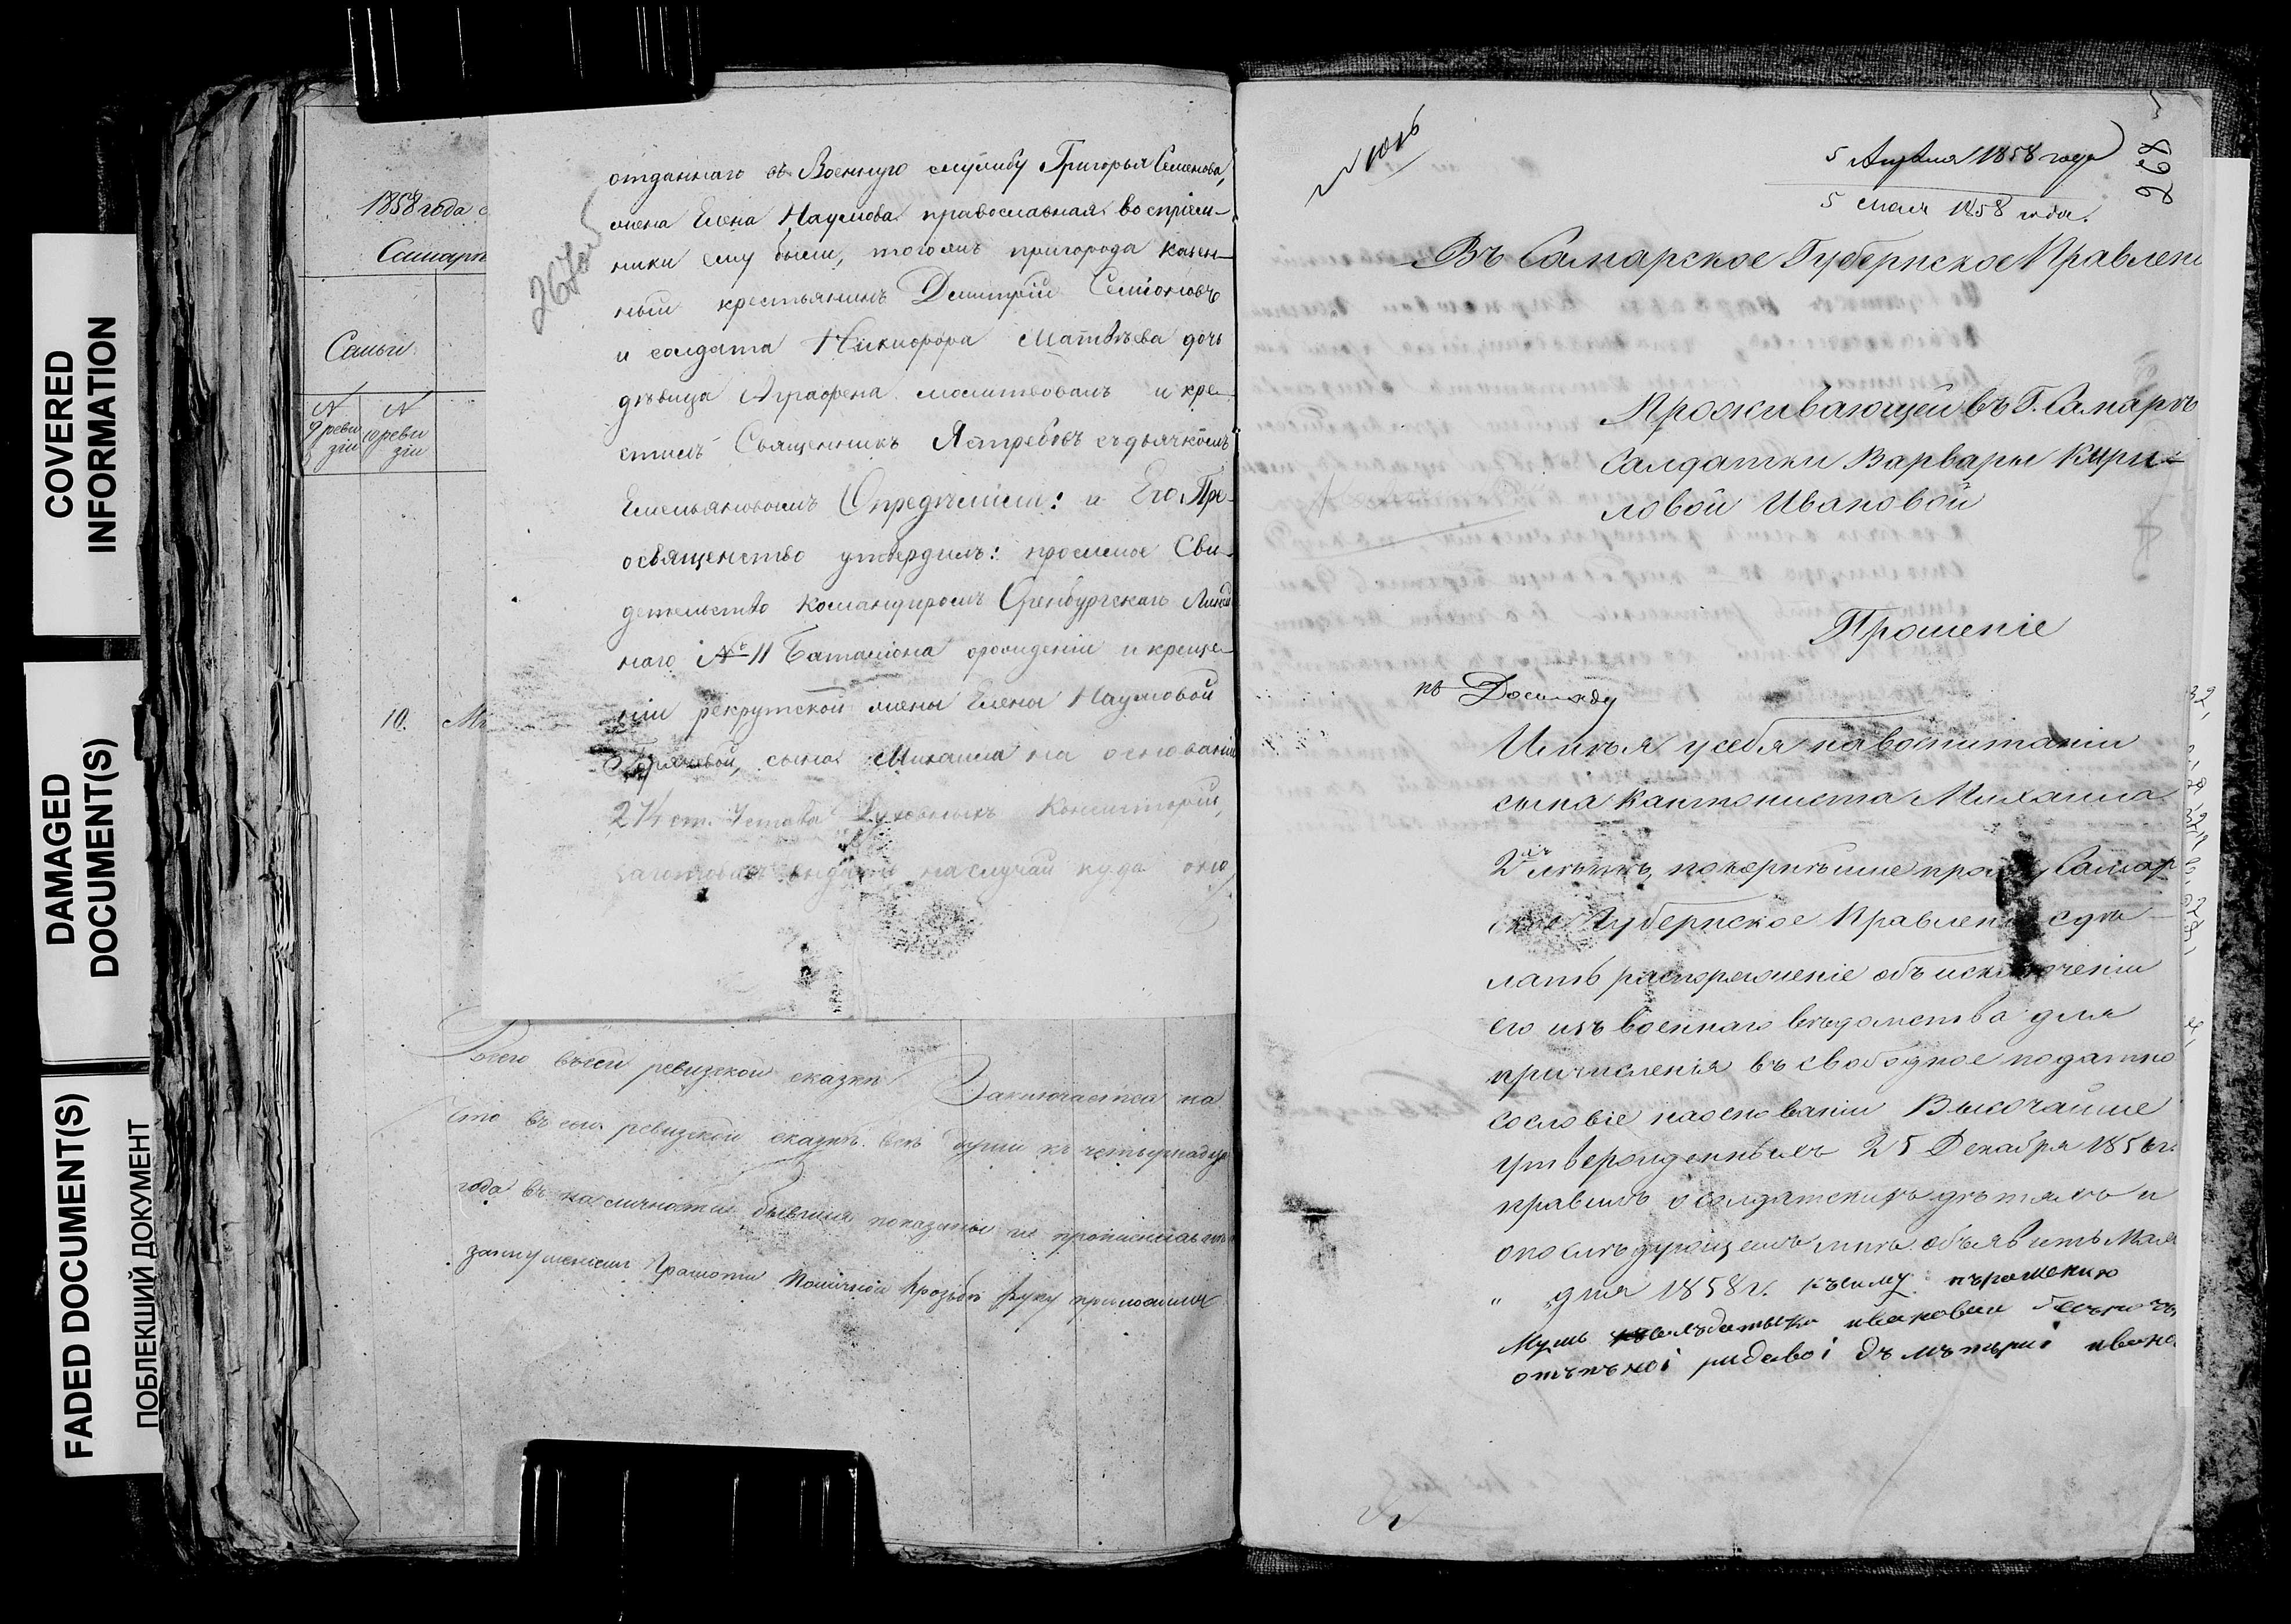 COVERED
INFORMATION
DAMAGED
DOCUMENT(S)
FADED DOCUMENT(S)
ПОБЛЕКШИЙ ДОКУМЕНТ
1858 года
Самарс
Семьи
№
9 реви
зіи
№
10 реви
зіи
10.
267 об
отданнаго въ Военную службу Григорья Семенова,
жена Елена Наумова православная воспріем-
ники ему были, тогожъ пригорода казен-
ный крестьянинъ Дмитрій Семіоновъ
и солдата Никифора Матвѣева дочь
дѣвица Аграфена молитвовалъ и кре-
стилъ Священникъ Ястребовъ съ дьячкомъ
Емельяновымъ Опредѣлили: и Его Пре-
освященство утвердилъ: просимое Сви-
детельство командиромъ Оренбургскаго Линей
наго № 11 Баталіона о рожденіи и креще-
ніи рекрутской жены Елены Наумовой
сына Михаила на основаніи
274 ст. Устава Духовныхъ Консисторій,
на случай куда оно
Всего въ сей ревизской сказки Заключается на
что въ сей ревизской сказкѣ всѣ души къ четырнадца
года въ на личности бывшия показаны и
Грамоти прозьбѣ руку приложилъ
268
5 Апреля 1858 года
5 мая 1858 года.
Въ Самарское Губернское Правлені
Проживающей въ Г. Самарѣ
Салдатки Варвары Кири-
ловой Ивановой
Прошеніе
къ Докладу
Имѣя у себя на воспитаніи
сына кантониста Михаила
2 лѣтъ, покорнѣйше прошу Самар
ское Губернское Правленіе сдѣ-
лать распоряженіе объ исключеніи
его изъ военнаго вѣдомства для
причисленія въ свободное податно
сословіе на основаніи Высочайше
утвержденныхъ 25 Декабря 1856 г.
правилъ о солдатскихъ дѣтяхъ и
о послѣдующемъ мнѣ объявить Мая
" дня 1858 г. къ сему прошенію